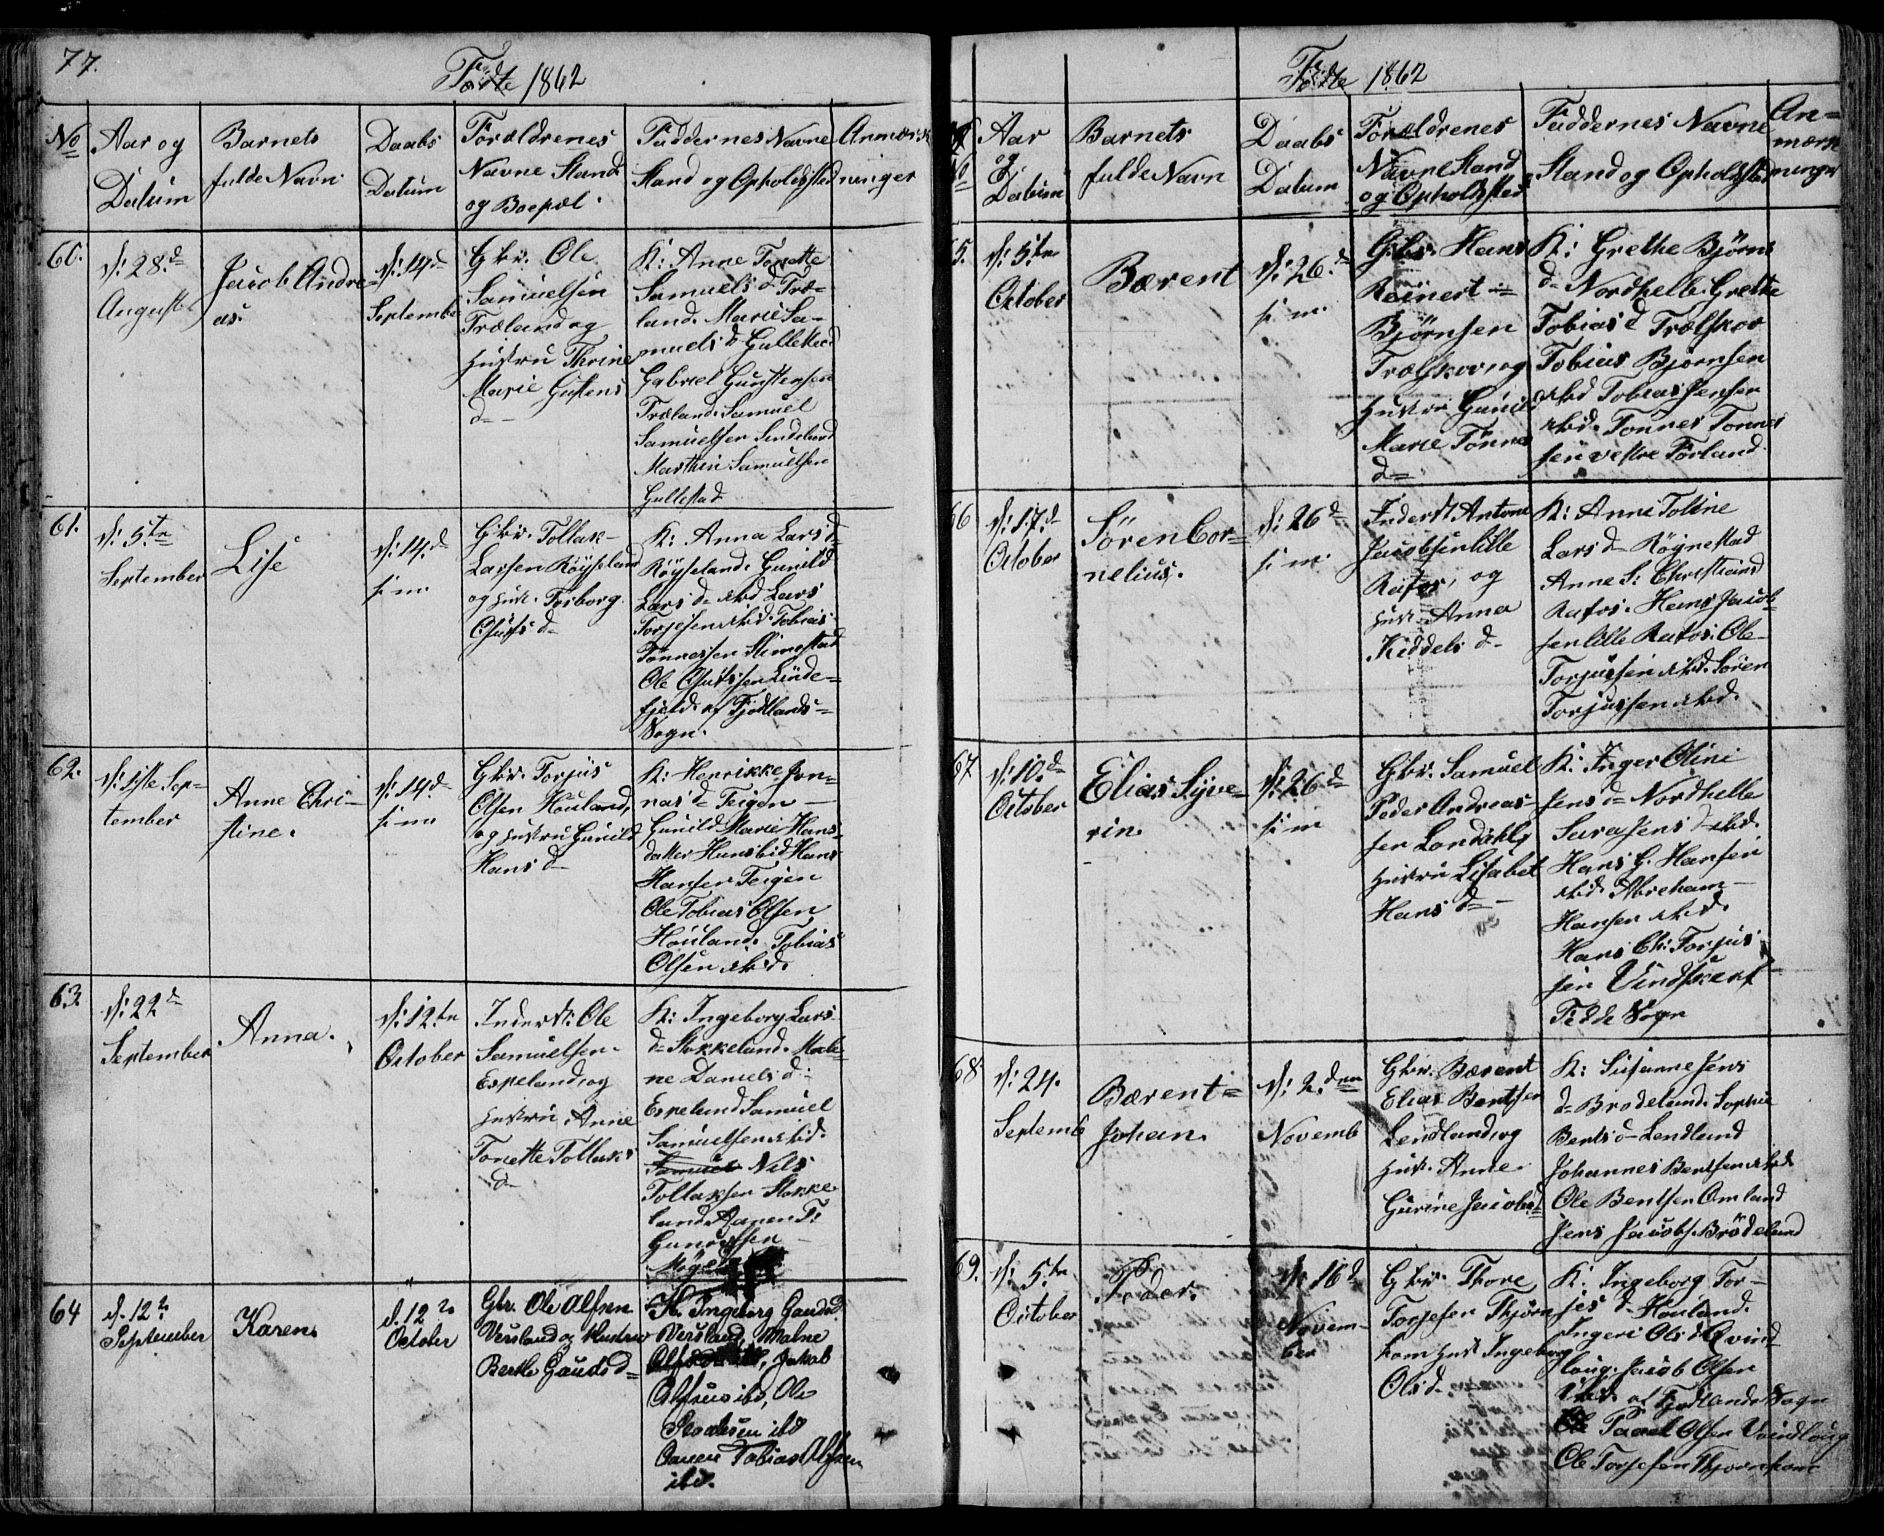 77.
Fødte 1862
No
Aar og
Datum
Barnets
fulde Navn
Daabs
Datum
Forældrenes
Navne Stand
og Boepæl
Faddernes Navne
Stand og Opholdssted
Anmærk
ninger
60.
d: 28.d
August
Jacob Andre-
as.
d: 14.d
Septembe
Gbr. Ole
Samuelsen
Træland og
Hustru Thrine
Marie Gustens
d-
K: Anne Tonette
Samuels d Træ-
land. Marie Sa-
muels d Gullestad
Gabriel Gunstensen
Træland. Samuel
Samuelsen Sindeland
Marthin Samuelsen
Gullestad
61.
d: 5.te
September
Lise
d: 14.d
s: m:
Gbr. Tollak-
Larsen Röyseland
og Hust. Torborg
Osufs d-
K: Anna Lars d-
Röyseland. Gunild
Lars d- ibid Lars
Torjesen ibid. Tobias
Tönnessen Stimestad
Ole Osufssen Linde-
fjeld af Fjotlands-
Sogn.
62.
d: 1ste Sep-
tember
Anne Chri-
stine.
d: 14.d
s: m:
Gbr. Torjus
Olsen Houland,
og Hustru Gunild
Hans d-
K: Henrikke Jon-
nas d- Teigen
Gunild Marie Hans-
datter Hunsbid Hans
Hansen Teigen
Ole Tobias Olsen
Houland. Tobias
Olsen ibid.
63.
d: 22d
September
Anna.
d: 12.te
October
Inderst: Ole
Samuelsen
Espeland, og
Hustru Anne
Tonette Tollaks
d-
K: Ingeborg Lars
d- Stokkeland. Male-
ne Daniels d-
Espeland Samuel
Samuelsen ibid.
Samuel Nils
Tollaksen Stokke
land. Aanen T:
Gunersen
64
d. 12te
September
Karen.
d. 12te
October
Gbr. Ole Alfsen
Versland og Hustru
Berthe Gauds d-
K. Ingeborg Gauds d.
Versland, Malne
Jakob
Alfsens ibd, Ole
ibd
Aanen Tobias Alfsen
ibd.
Fødte 1862
No
Aar
og
Datum
Barnets
fulde Navn
Daabs
Datum
Forældrenes
Navne Stand
og Opholdssted
Faddernes Navne
Stand og Opholdssted
An-
mærk
ninger
5.
d: 5.te
October
Bærent
d: 26.d
s: m:
Gbr. Hans
Reinert
Björnsen
Trælskov, og
Hustru Gunild
Marie Tönnes
d-
K: Grethe Björns
d- Nordhelle. Grethe
Tobias d Trælskov
Tobias Björnsen
ibid Tobias Jensen
ibid. Tönnes Tönnes
sen vestre Förland
66
d: 17.d
October
Sören Cor-
nelius.
d: 26d
s: m:
Inderst Antone
Jacobsen lille
Rafos, og
Hust. Anna
Kiddels d-
K: Anne Toline
Lars d- Rögnestad
Anne S: Christians
Rafos. Hans Jacob-
sen lille Rafos. Ole
Torjussen ibid. Sören
Torjussen ibid.
67
d: 10.d
October
Elias Syve-
rin.
d: 26d
s: m
Gbr. Samuel
Peder Andreas-
sen Londahl og
Hustru Lisabet
Hans d-
K: Inger Olini
Jens d- Nordhelle
Sara Jens d- ibid.
Hans G. Hansen
ibid. Abraham-
Hansen ibid.
Hans Ch: Torjus-
sen Vindskeit
Fedde Sogn
68.
d: 24.
Septemb
Bærent-
Johan.
d: 2.den
Novemb
Gbr. Bærent
Elias Bentsen
Lendland og
Hust. Anne
Gurine Jacobs d
K: Susanne Jens
d- Brodeland. Sophie
Bents d- Lendland
Johannes Bentsen ibid
Ole Bentsen Omland
Jens Jacobs. Brödeland
69.
d: 5.te
October
Peder.
d: 16d
Novem-
ber
Gbr. Thore
Torjesen Thjörn
hom Hust Ingeborg
Ols d.
K: Ingeborg Tor-
jes d- Houland.
Ingeri Ols d Qvind-
loug. Jacob Olsen
ibid. af Fjotlands Sogn
Paavel Olsen Qvindloug
Ole Torjesen Thjornhom